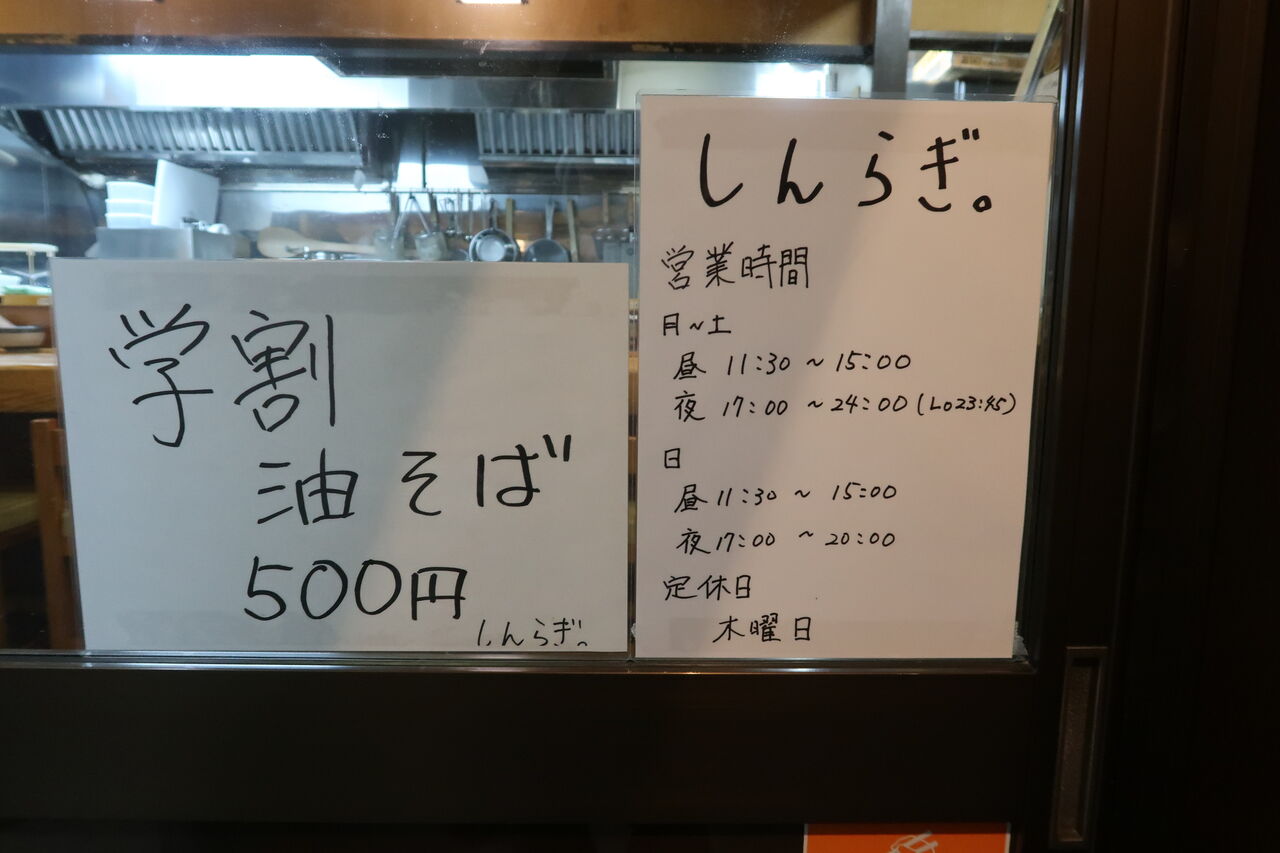 学割
油そば
500円
しんらぎ。
しんらぎ。
営業時間
月~土
昼 11:30 ~ 15:00
夜 17:00 ~ 24:00 (Lo23:45)
日
昼 11:30 ~ 15:00
夜 17:00 ~ 20:00
定休日
木曜日